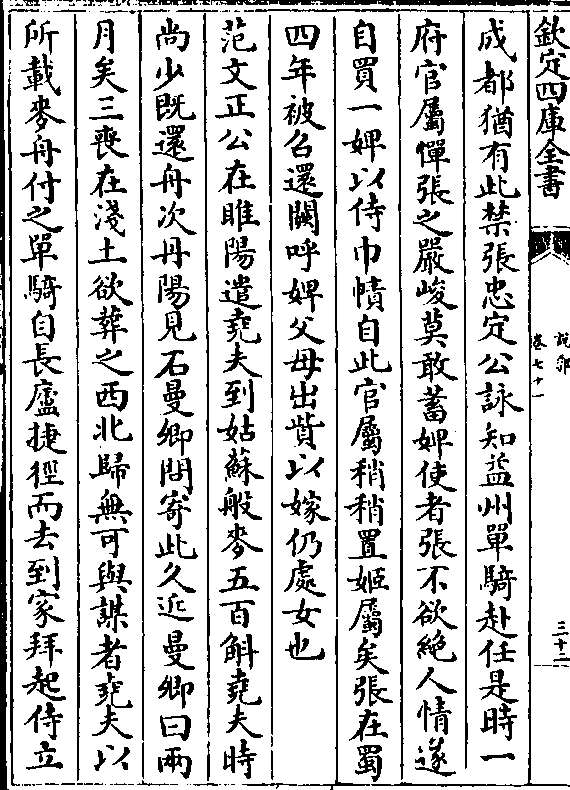 欽定四庫全書
說郛
卷七十一
三十二
成都猶有此禁張忠定公詠知益州單騎赴任是時一
府官屬憚張之嚴峻莫敢蓄婢使者張不欲絶人情遂
自買一婢以侍巾幘自此官屬稍稍置姬屬矣張在蜀
四年被召還闕呼婢父母出貲以嫁仍處女也
范文正公在睢陽遣堯夫到姑蘇般麥五百斛堯夫時
尚少既還舟次丹陽見石曼卿問寄此久近曼卿曰兩
月矣三喪在淺土欲葬之西北歸無可與謀者堯夫以
所載麥舟付之單騎自長廬捷徑而去到家拜起侍立